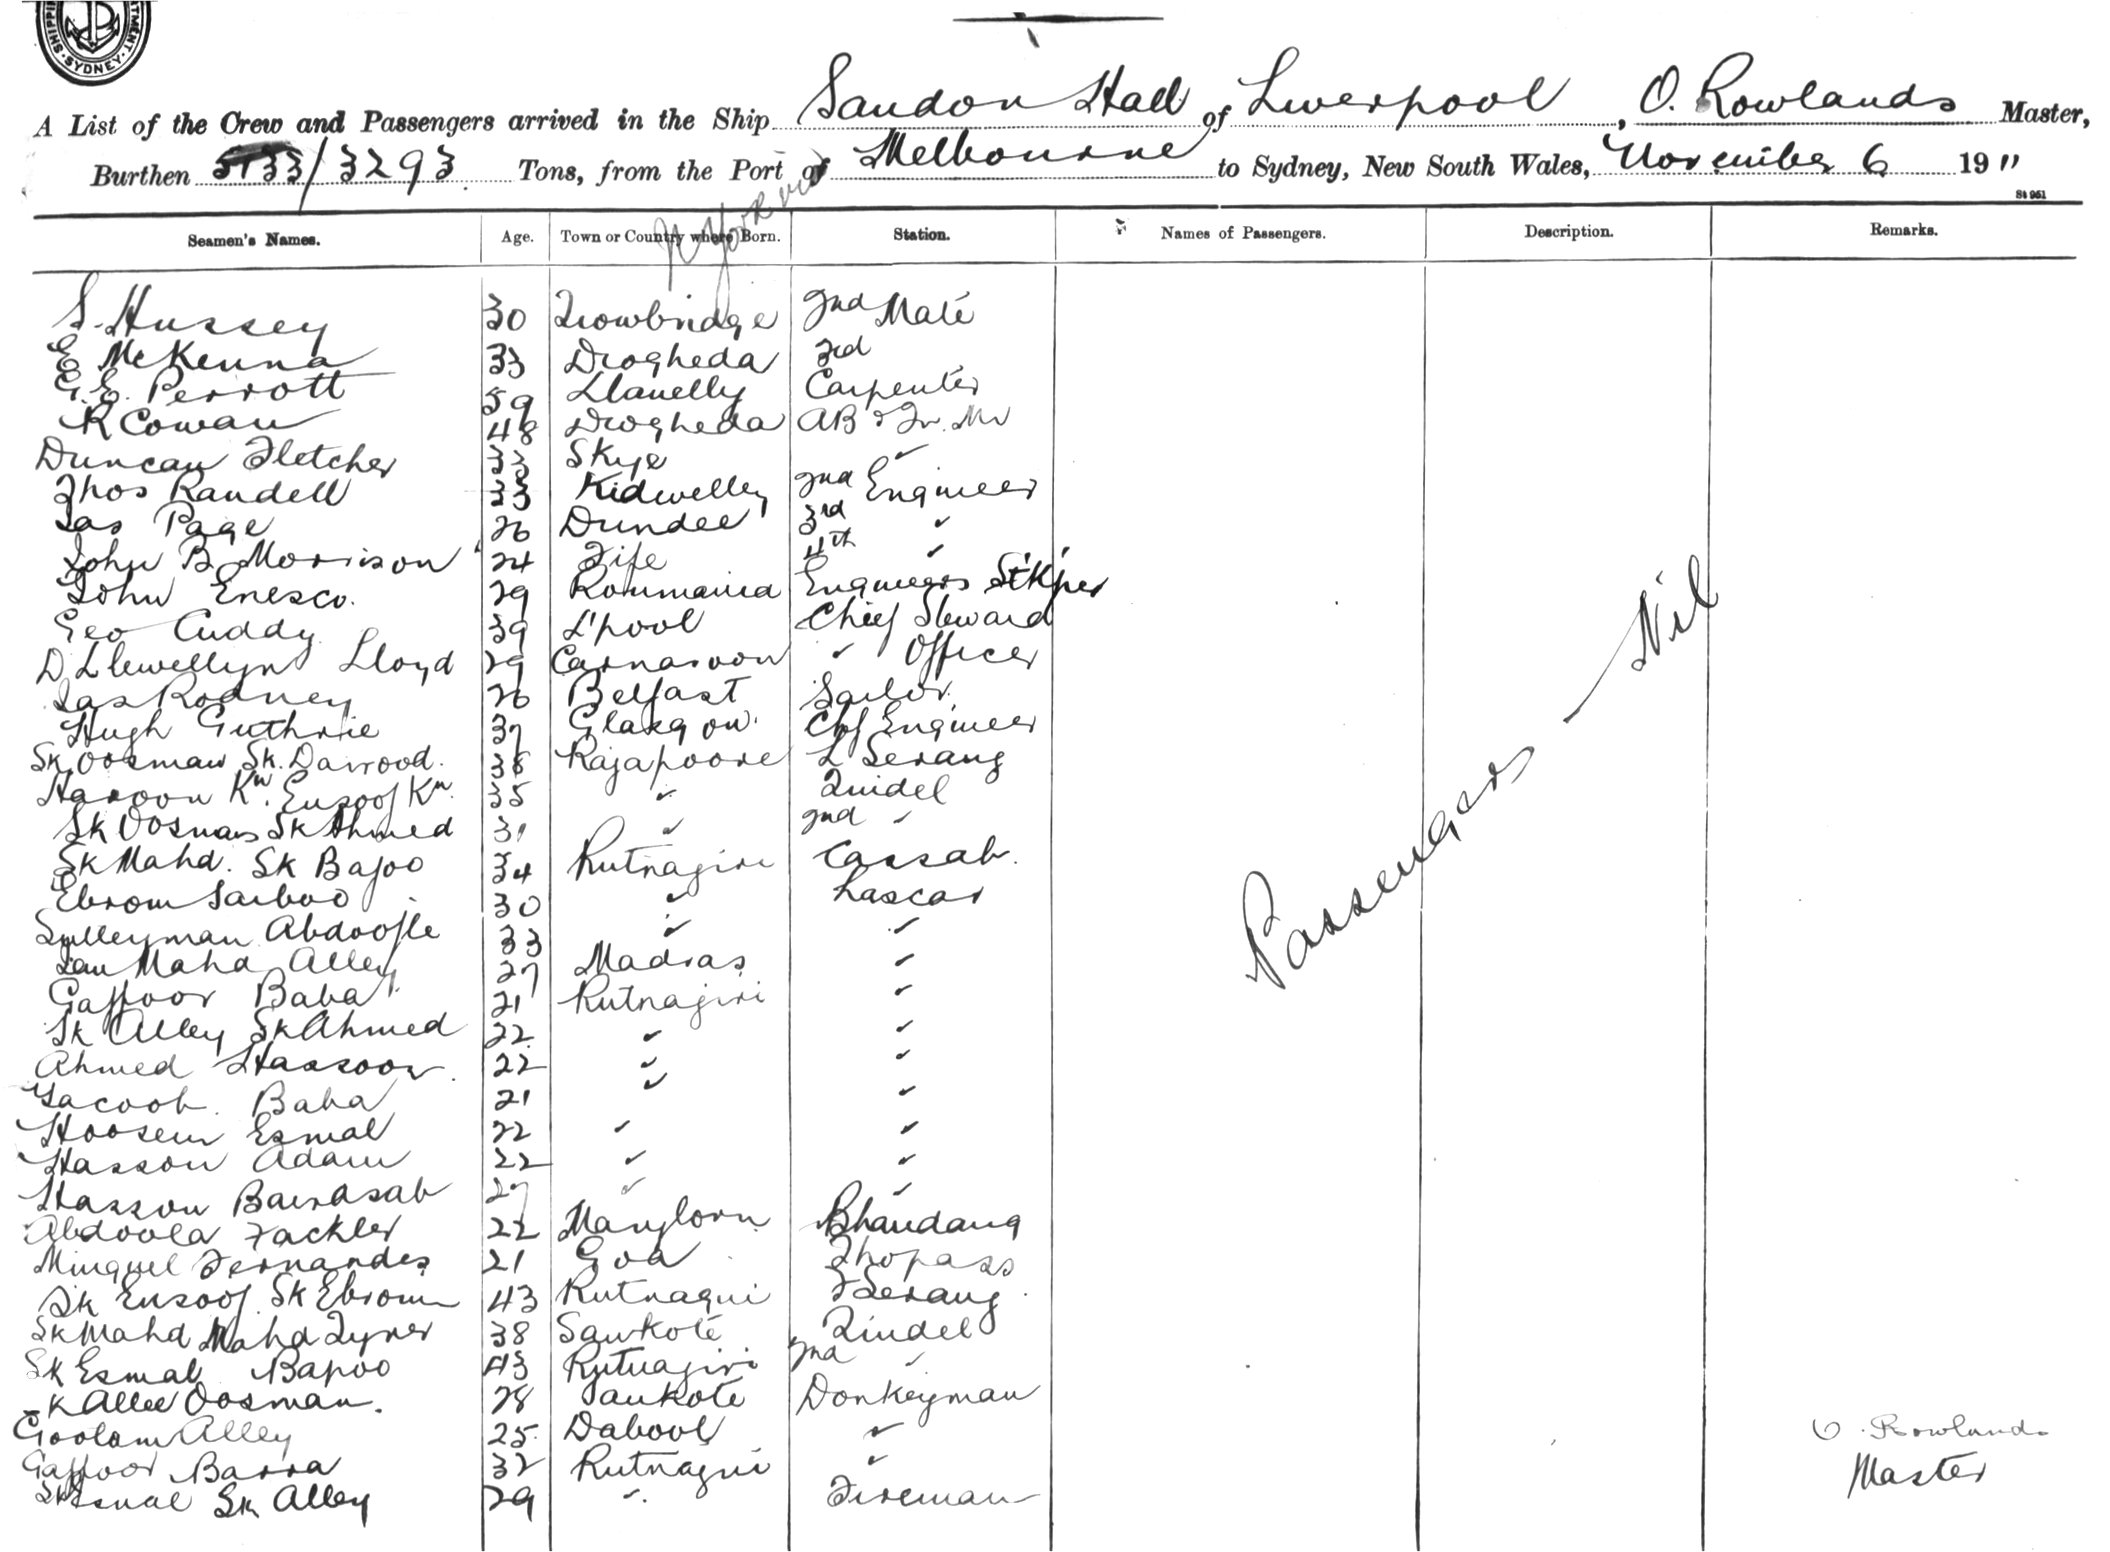 SHIPPING DEPARTMENT SYDNEY
A List of the Crew and Passengers arrived in the Ship Sandon Hall of Liverpool, O. Rowlands Master,
Burthen 5133/3293 Tons, from the Port of Melbourne to Sydney, New South Wales, November 6 1911
St 951
N York via
Seamen's Names. Age. Town or Country where Born. Station. Names of Passengers. Description. Remarks.
S. Hussey 30 Trowbridge 2nd Mate
E McKenna 33 Drogheda 3rd
G. E. Perrott 59 Llanelly Carpenter
R Cowan 48 Drogheda AB & Qr. Mr
Duncan Fletcher 33 Skye "
Thos Randell 33 Kidwelley 2nd Engineer
Jas Page 26 Dundee 3rd "
John B Morrison 24 Fife 4th "
John Enesco. 29 Roumania Engineers St'k'per
Geo Cuddy 39 L'pool Chief Steward
D Llewellyn Lloyd 29 Carnarvon " Officer
Jas Rodney 26 Belfast Sailor
Hugh Guthrie 37 Glasgow. Chf Engineer
Sk Oosman Sk. Dawood. 38 Rajapoore L Serang
Haroon Kn. Eusoof Kn. 35 " Tindel
Sk Oosman Sk Ahmed 31 " 2nd "
Sk Mahd. Sk Bapoo 34 Rutnagiri Cassab.
Ebrom Saiboo 30 " Lascar
Sulleyman Abdoofle 33 " "
Jan Mahd Alley 27 Madras "
Gaffoor Baba 21 Rutnagiri "
Sk Alley Sk Ahmed 22 " "
Ahmed Hassoon. 22 " "
Yacoob. Baba 21 " "
Hoosein Esmal 22 " "
Hasson Adam 22 " "
Hasson Bawasab 27 " "
Abdoola Fackler 22 Manglorn Bhandang
Minguel Fernandes 21 Goa Thopass
Sk Eusoof Sk Ebrom 43 Rutnagiri F Serang
Sk Mahd Mahd Tyner 38 Sawkote Tindel
Sk Esmal Bapoo 43 Rutnagiri 2nd "
Sk Allee Oosman. 28 Saukote Donkeyman
Goolam Alley 25 Dabool "
Gaffoor Barra 32 Rutnagiri "
Sk Esmal Sk Alley 29 " Fireman
Passengers — Nil
O. Rowlands
Master